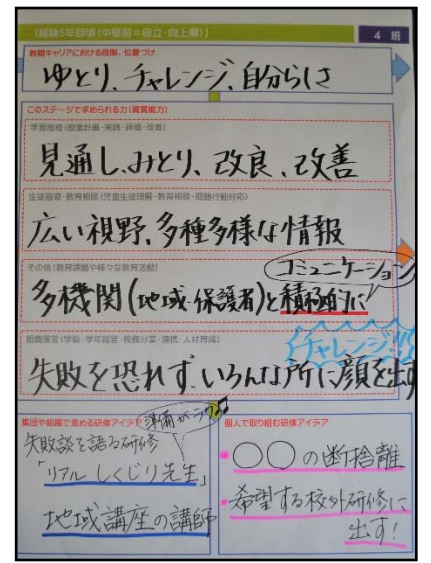 【経験5年目頃(中堅前=自立・向上期)】
4 班
教職キャリアにおける段階、位置づけ
ゆとり、チャレンジ、自分らしさ
このステージで求められる力(資質能力)
学習指導(授業計画・実践・評価・改善)
見通し、みとり、改良、改善
生徒指導・教育相談(児童生徒理解・教育相談・問題行動対応)
広い視野、多種多様な情報
その他(教育課題や様々な教育活動)
コミュニケーション
多機関(地域・保護者)と積極的に
組織運営(学級・学年経営・校務分掌・連携・人材育成)
チャレンジ!!
失敗を恐れず、いろんな所に顔を出す
集団や組織で進める研修アイデア
準備がラク♪
失敗談を語る研修
「リアル しくじり先生」
地域講座の講師
個人で取り組む研修アイデア
•○○の断捨離
•希望する校外研修に
出す!